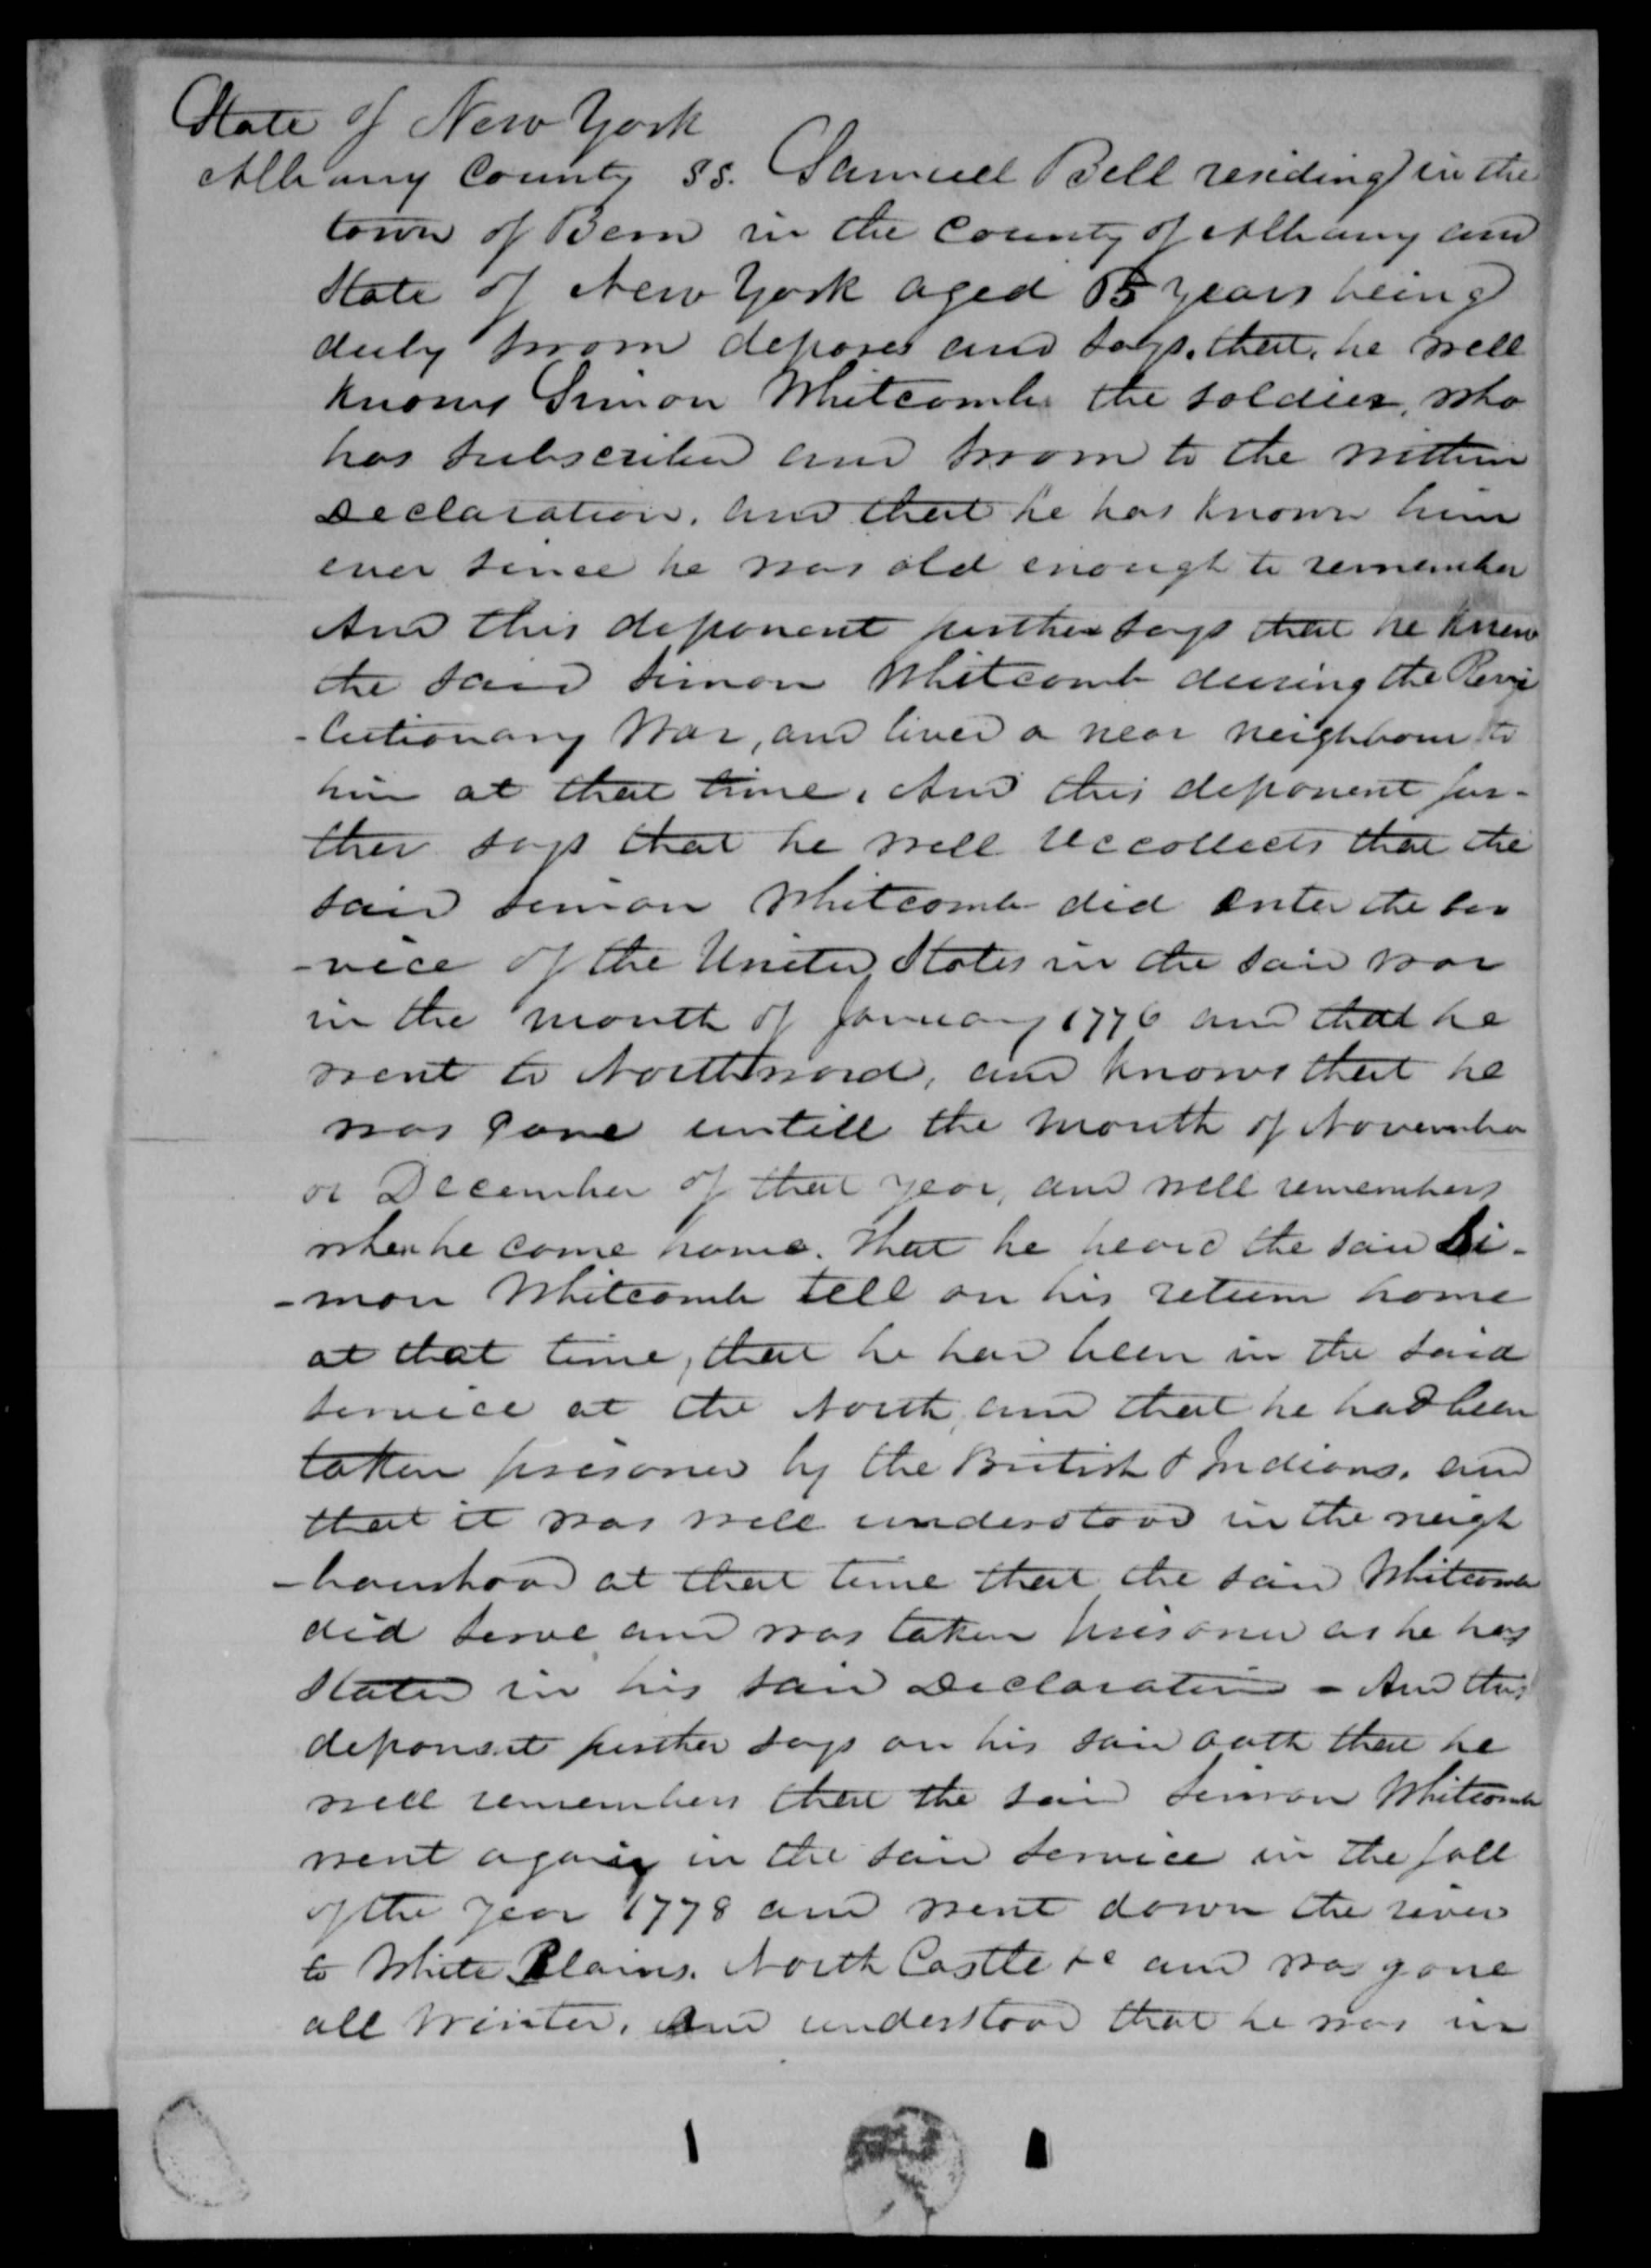 State of New York
Albany County SS. Samuel Bell residing in the
town of Bern in the County of Albany and
State of New York aged years being
duly sworn deposes and says. that, he well
knows Simon Whitcomb the soldier, who
has subscribed and sworn to the within
Declaration. and that he has known him
ever since he was old enough to remember
And this deponent further says that he knew
the said Simon Whitcomb during the Revo
-lutionary War, and lived a near neighbour to
him at that time. And this deponent fur-
ther says that he well reccollects that the
said Simon Whitcomb did enter the ser
-vice of the United States in the said war
in the month of January 1776 and that he
went to Northward, and knows that he
was gone untill the month of November
or December of that year, and well remembers
when he come home. That he heard the said Si-
-mon Whitcomb tell on his return home
at that time, that he had been in the said
service at the North, and that he had been
taken prisoner by the British & Indians. and
that it was well understood in the neigh
-bourhood at that time that the said Whitcomb
did serve and was taken prisoner as he has
stated in his said Declaration - And this
deponent further says on his said oath that he
well remembers that the said Simon Whitcomb
went again in the said service in the fall
of the year 1778 and went down the river
to White Plains. North Castle &c and was gone
all winter. And understood that he was in